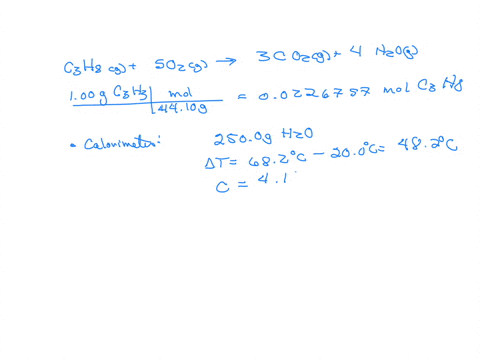 C3H8(g) + 5O2(g) → 3CO2(g) + 4 H2O(g)
1.00 g C3H3 | mol / 44.10g = 0.0226757 mol C3H8
• Calorimeter: 250.0g H2O
ΔT = 68.2°C - 20.0°C = 48.2°C
C = 4.1